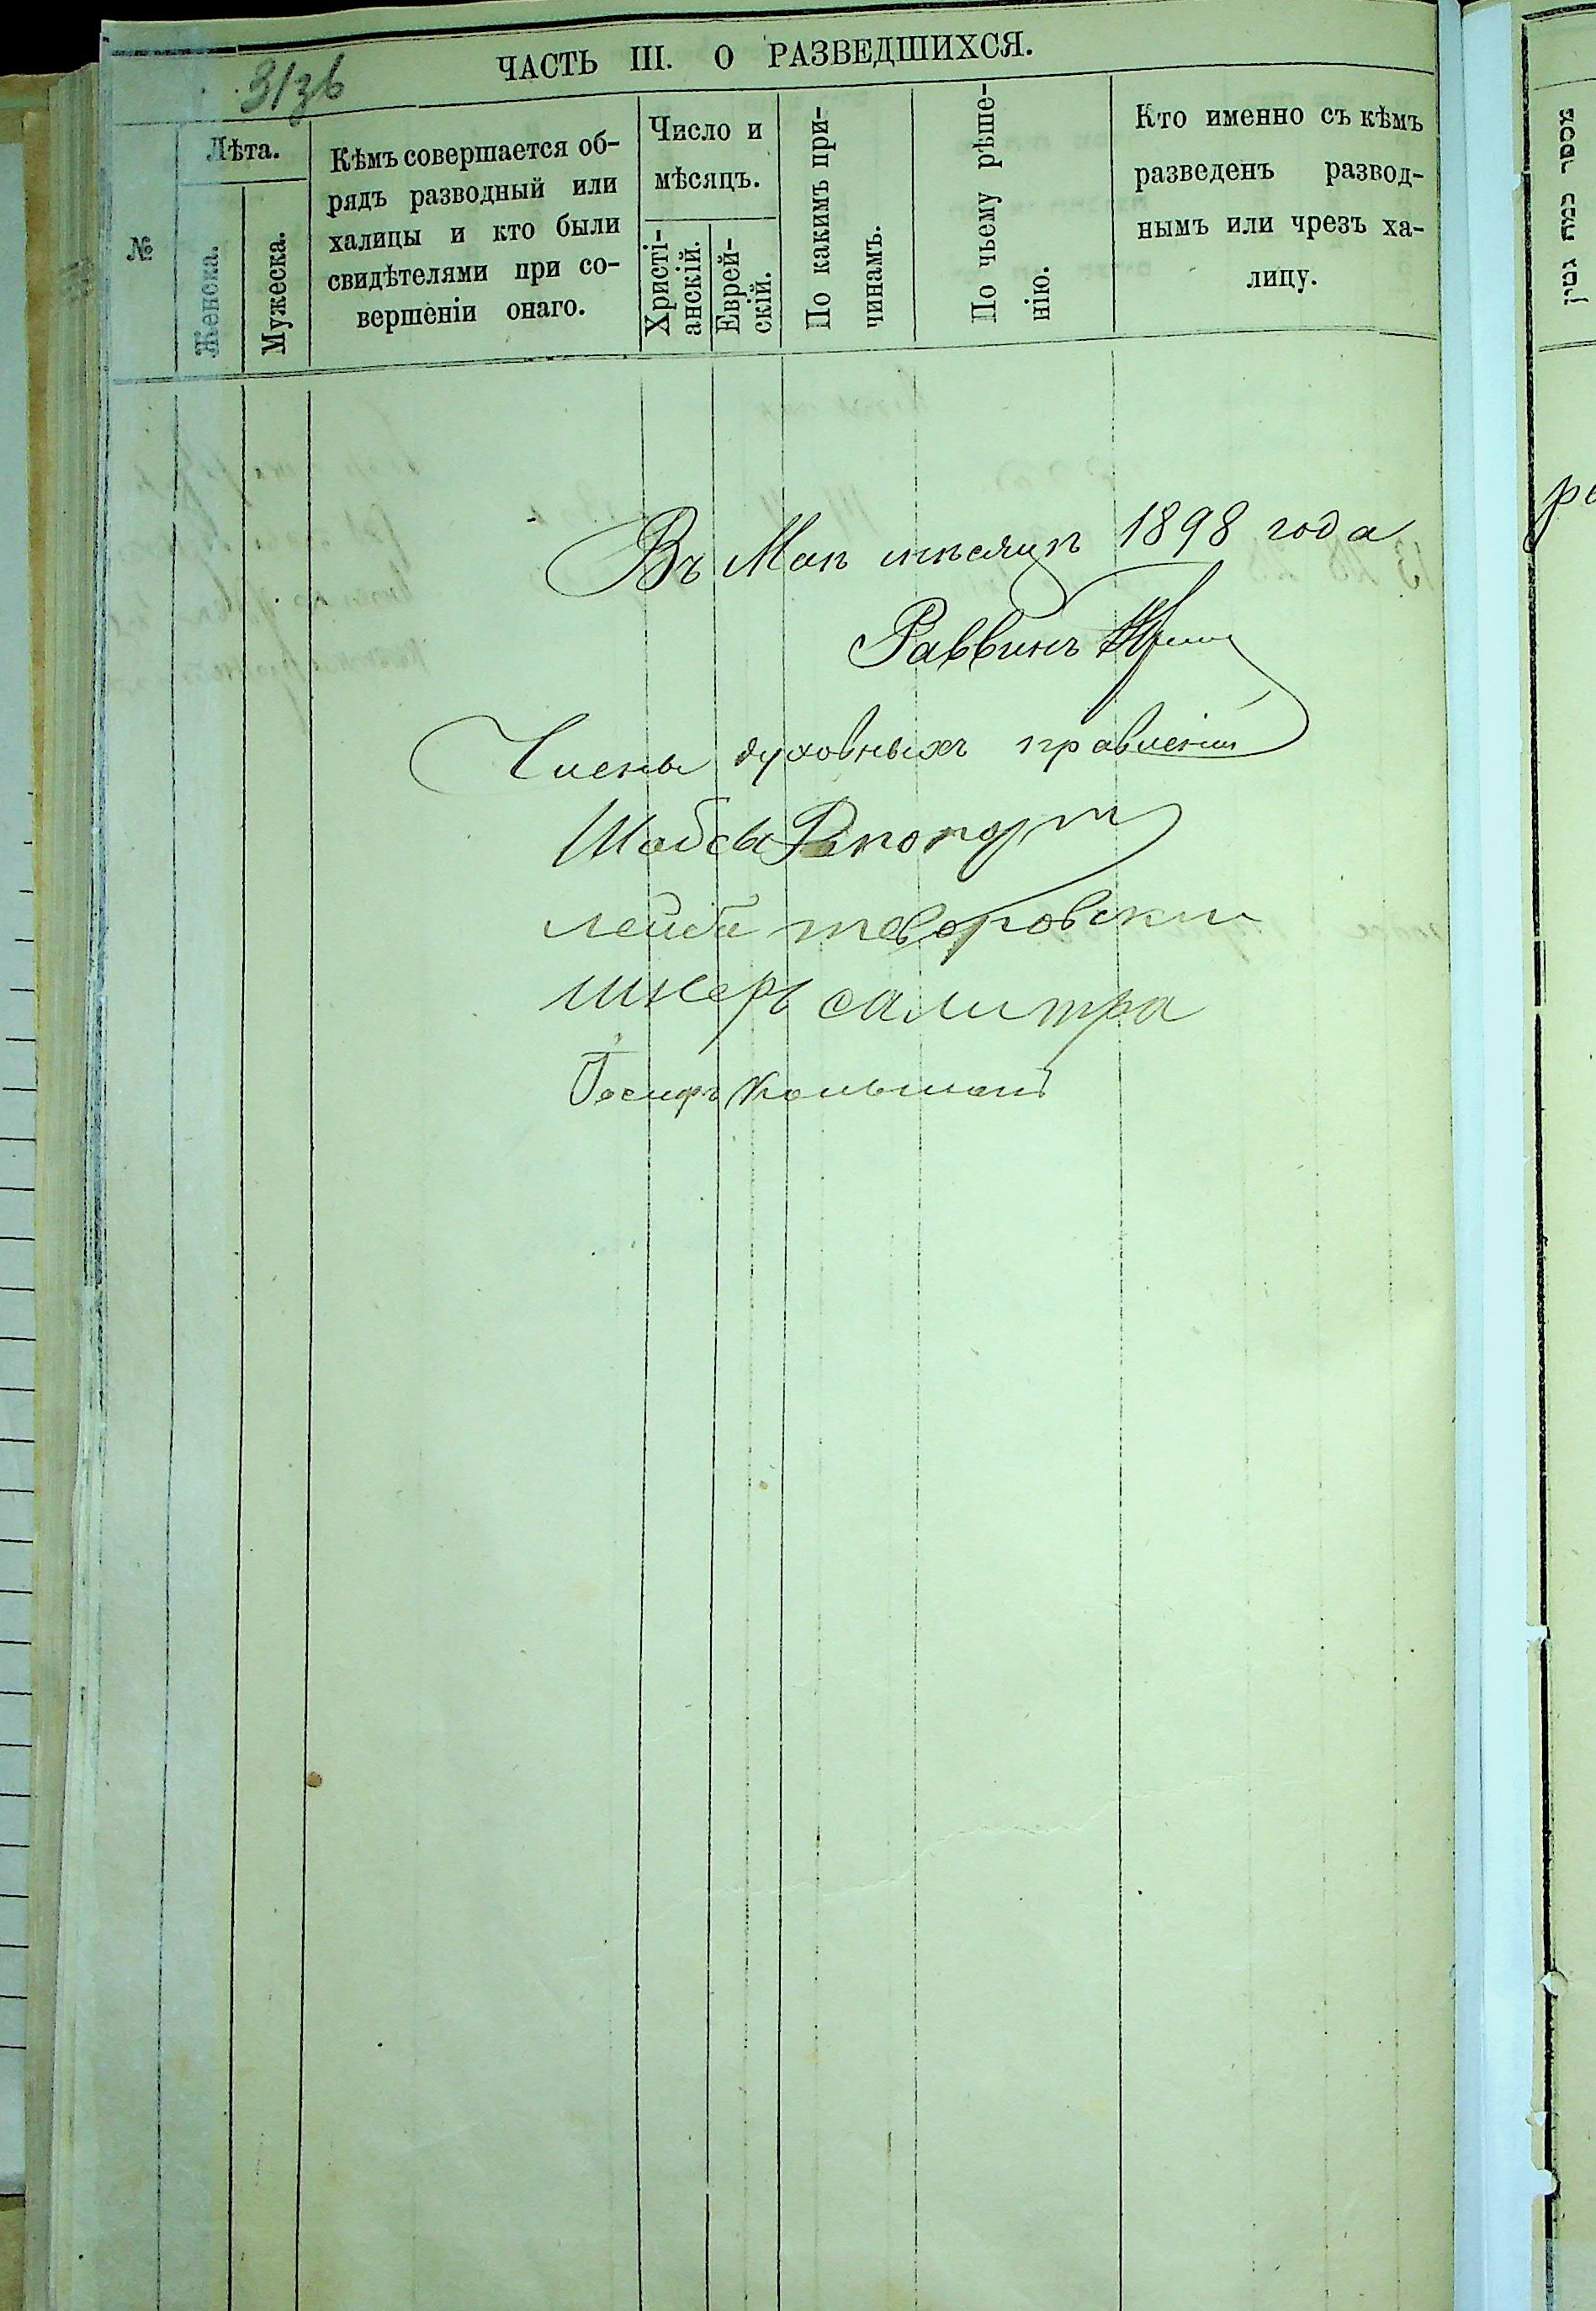 ЧАСТЬ III. О РАЗВЕДШИХСЯ.
31зв
№
Лѣта.
Женска.
Мужеска.
Кѣмъ совершается об-
рядъ разводный или
халицы и кто были
свидѣтелями при со-
вершеніи онаго.
Число и
мѣсяцъ.
Христі-
анскій.
Еврей-
скій.
По какимъ при-
чинамъ.
По чьему рѣше-
нію.
Кто именно съ кѣмъ
разведенъ развод-
нымъ или чрезъ ха-
лицу.
Въ Маѣ мѣсяцѣ 1898 года
Раввинъ
Члены духовныхъ правленій
Шабсы Рапопортъ
лейба творовски
шнеръ салитра
Іосифъ Кальманъ
מספר כמה גטין